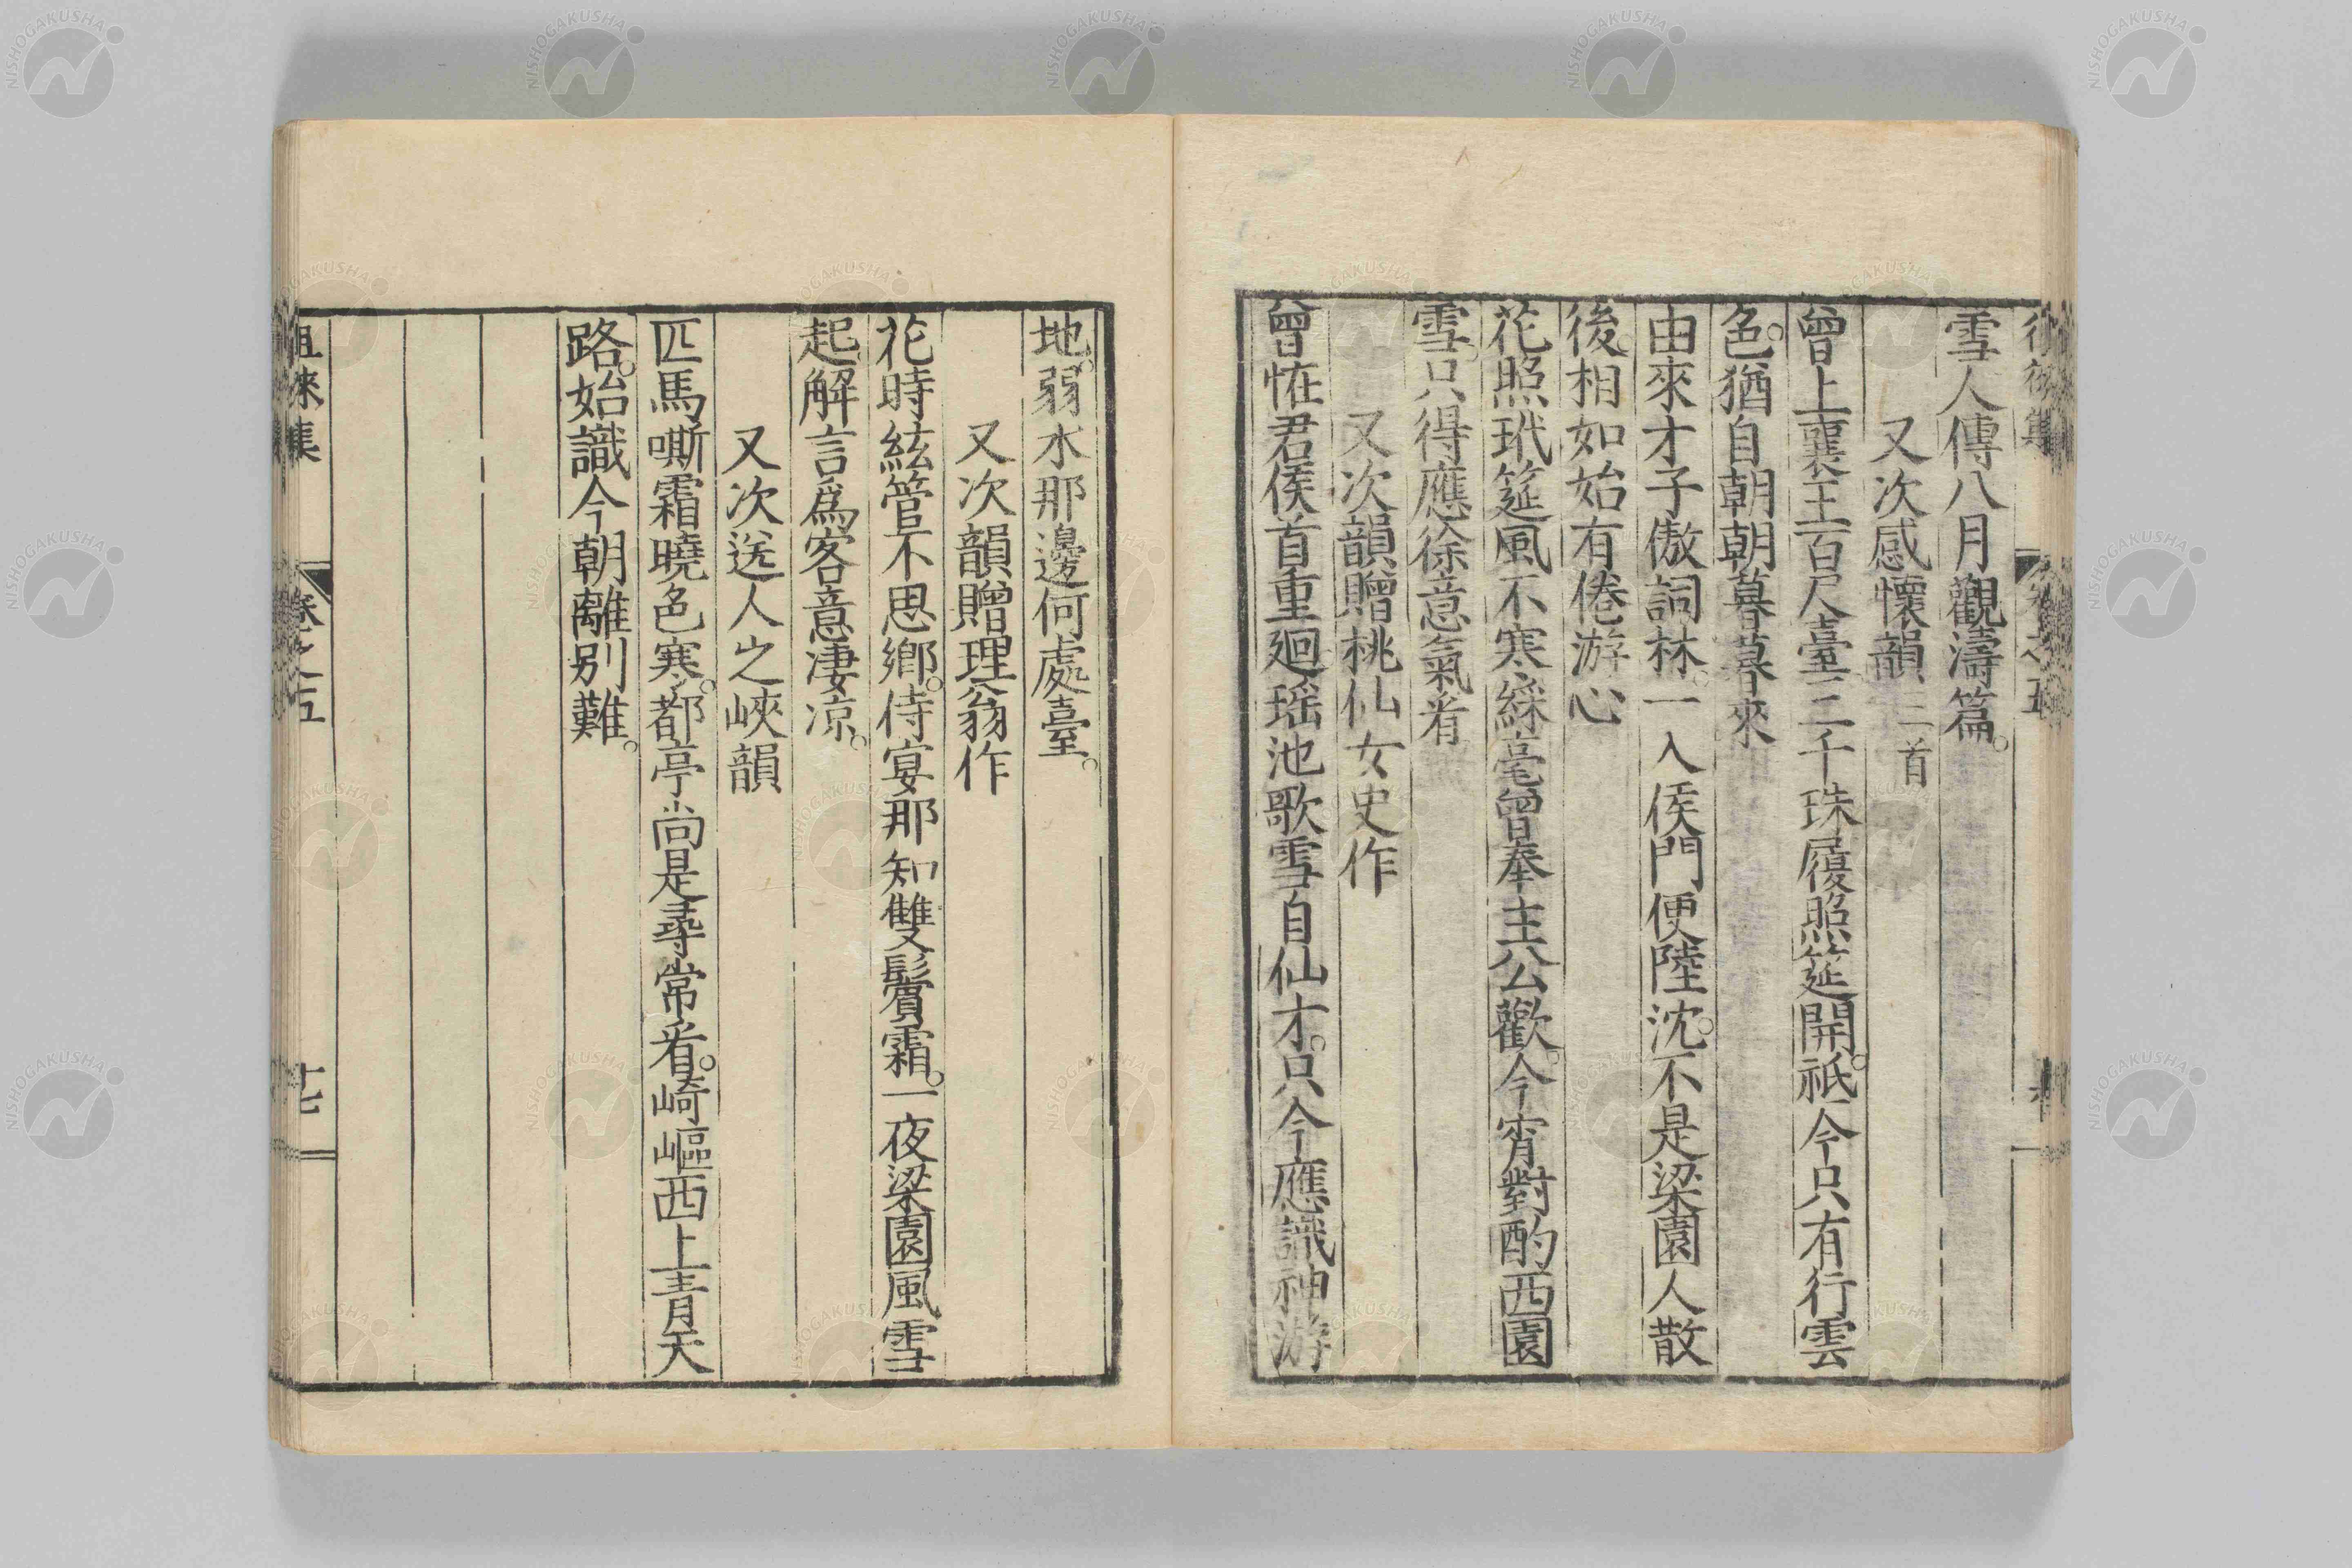 雪人傳八月觀濤篇。
又次感懷韻三首
曾上襄王百尺臺三千珠履照筵開。祇今只有行雲
色。猶自朝朝暮暮來
由來才子傲詞林。一入侯門便陸沈。不是梁園人散
後。相如始有倦游心
花照玳筵風不寒綵毫曾奉主公歡。今宵對酌西園
雪。只得應徐意氣看
又次韻贈桃仙女史作
曾恠君侯首重廻瑶池歌雪自仙才。只今應識神游
地。弱水那邊何處臺。
又次韻贈理翁作
花時絃管不思鄉。侍宴那知雙鬢霜。一夜梁園風雪
起解言爲客意凄凉。
又次送人之峽韻
匹馬嘶霜曉色寒。都亭尚是尋常看。崎嶇西上青天
路。始識今朝離別難。
徂徠集 卷之五 十七
NISHOGAKUSHA